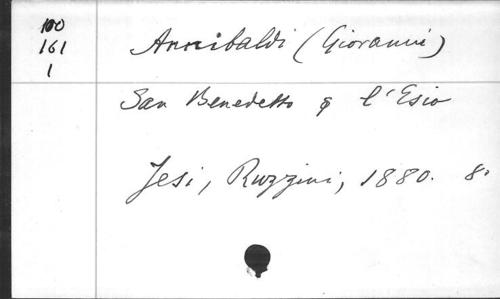 100
161
1
Annibaldi (Giovanni)
San Benedetto e l'Esio
Jesi, Ruzzini, 1880. 8º